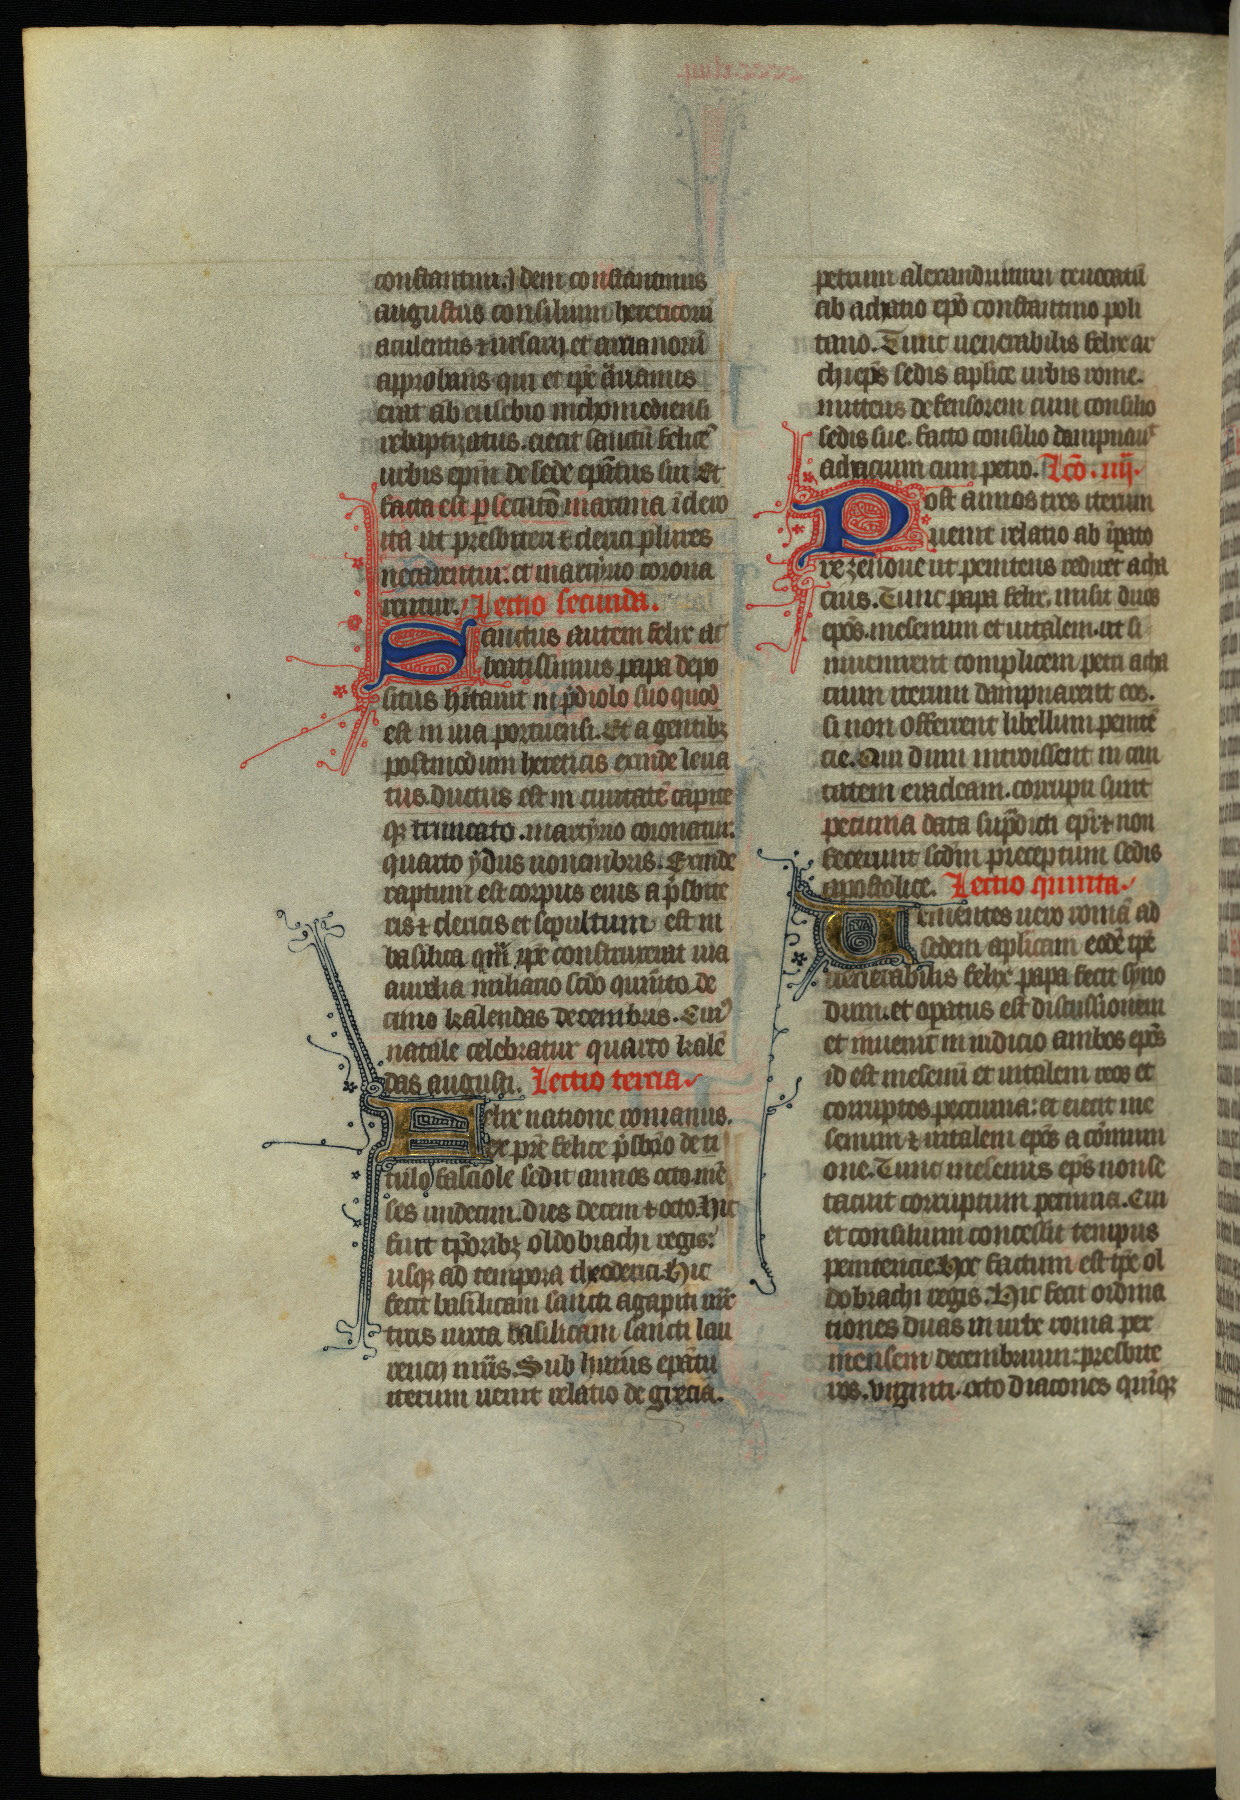 constantini. Idem constantinus
augustus consilium hereticorū
aculentis ⁊ ursacij et arrianorū
approbans qui et ip̄e arrianus
erat ab eusebio nichomediensi
rebaptizatus. eiecit sanctū felicē
urbis ep̄m de sede ep̄atus sui. Et
facta est ꝑsecutō maxima ideo
ita ut presbiteri ⁊ clerici plures
necarentur: et martyrio corona
rentur. Lectio secunda.
Sanctus autem felix ac
beatissimus papa depo
situs hitauit in p̄diolo suo quod
est in uia portuensi. Et a gentibꝫ
postmodum hereticis exinde leua
tus. ductus est in ciuitatē capite
qꝫ truncato. martyrio coronatur.
quarto ydus nouembris. Exinde
raptum est corpus eius a p̄sbite
ris ⁊ clericis et sepultum est in
basilica quā ip̄e construxerat uia
aurelia miliario scd̄o quinto de
cimo kalendas decembris. Cuiꝰ
natale celebratur quarto kalē
das augusti. Lectio tercia.
Felix natione romanus.
ex pr̄e felice p̄sb̄ro de ti
tulo fasciole sedit annos octo mē
ses undecim. dies decem ⁊ octo. Hic
fuit tp̄oribꝫ oldobrachi regis:
usqꝫ ad tempora theoderici. Hic
fecit basilicam sancti agapiti mr̄
tiris iuxta basilicam sancti lau
rencij mr̄is. Sub huius ep̄atu
iterum uenit relatio de grecia.
petrum alexandrinum reuocatū
ab achatio ep̄o constantino poli
tano. Tunc uenerabilis felix ar
chiep̄s sedis ap̄lice urbis rome.
mittens defensorem cum consilio
sedis sue. facto consilio dampnauꝭ
achacium cum petro. Lc̄o. iiij.
Post annos tres iterum
uenit relatio ab īpato
re zenone ut penitens rediret acha
cius. Tunc papa felix. misit duos
ep̄os. mesenum et uitalem. ut si
inuenirent complicem petri acha
cium iterum dampnarent eos.
si non offerrent libellum penitē
cie. Qui dum introissent in ciui
tatem eracleam. corrupti sunt
pecunia data sup̄dicti ep̄i. ⁊ non
fecerunt scd̄m preceptum sedis
apostolice. Lectio quinta.
Uenientes uero romā ad
sedem ap̄licam eodē tp̄e
uenerabilis felix papa fecit syno
dum. et opatus est discussionem
et inuenit in iudicio ambos ep̄os
id est mesenū et uitalem reos et
corruptos pecunia: et eiecit me
senum ⁊ uitalem ep̄os a cōmuni
one. Tunc mesenus ep̄s non se
tacuit corruptum pecunia. Cui
et consilium concessit tempus
penitencie. Hoc factum est tp̄e ol
dobrachi regis. Hic fecit ordina
tiones duas in urbe roma per
mensem decembrium: presbite
ros. viginti. octo diacones quinqꝫ